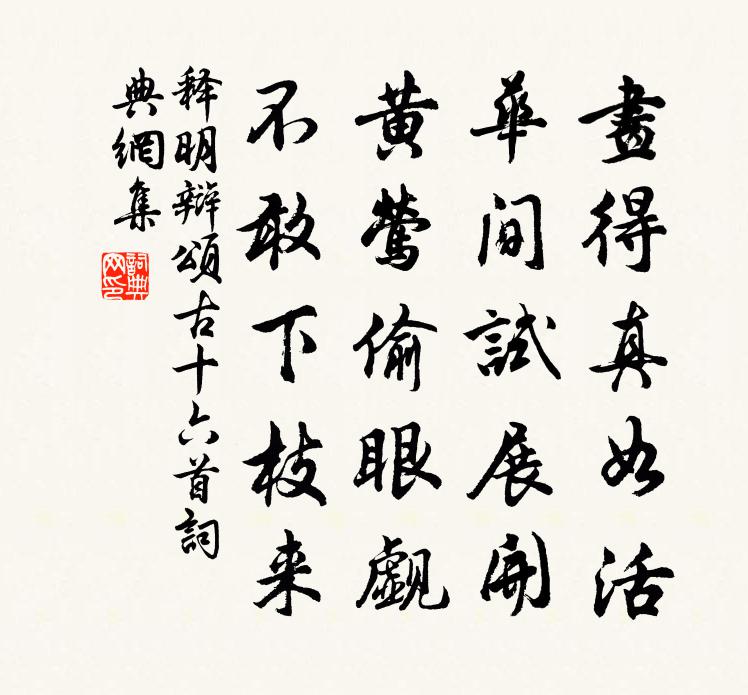 畫得真如活
華間試展開
黄鶯偷眼覷
不敢下枝来
释明辯頌古十六首詞
典網集
詞典
网印